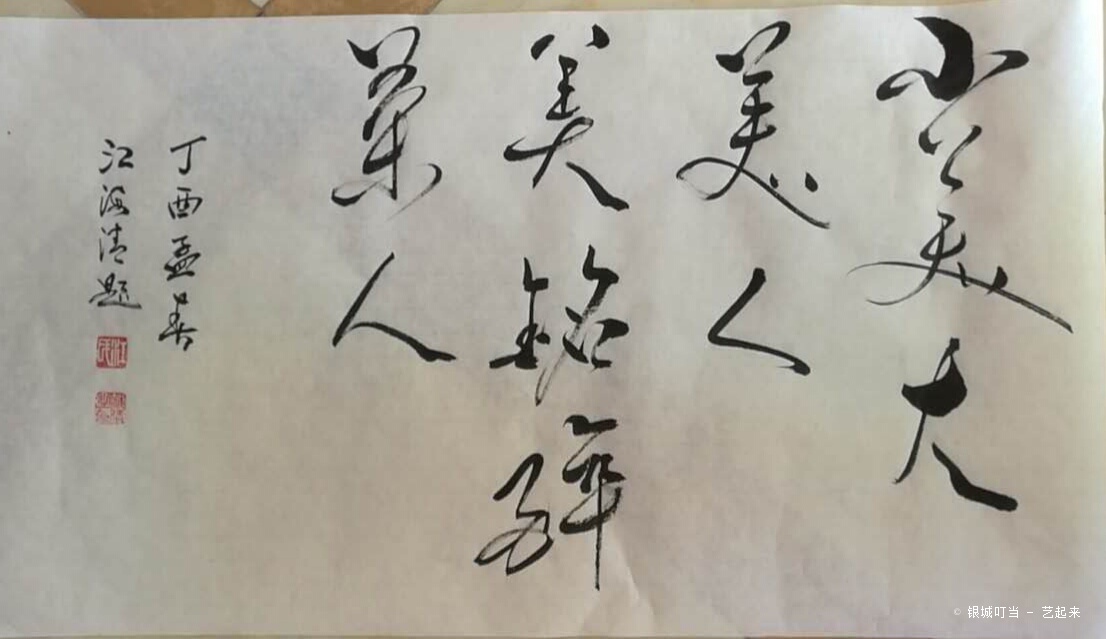 小美大
美人
美銘
人
丁酉孟春
江海清题
© 银城叮当 - 艺起来